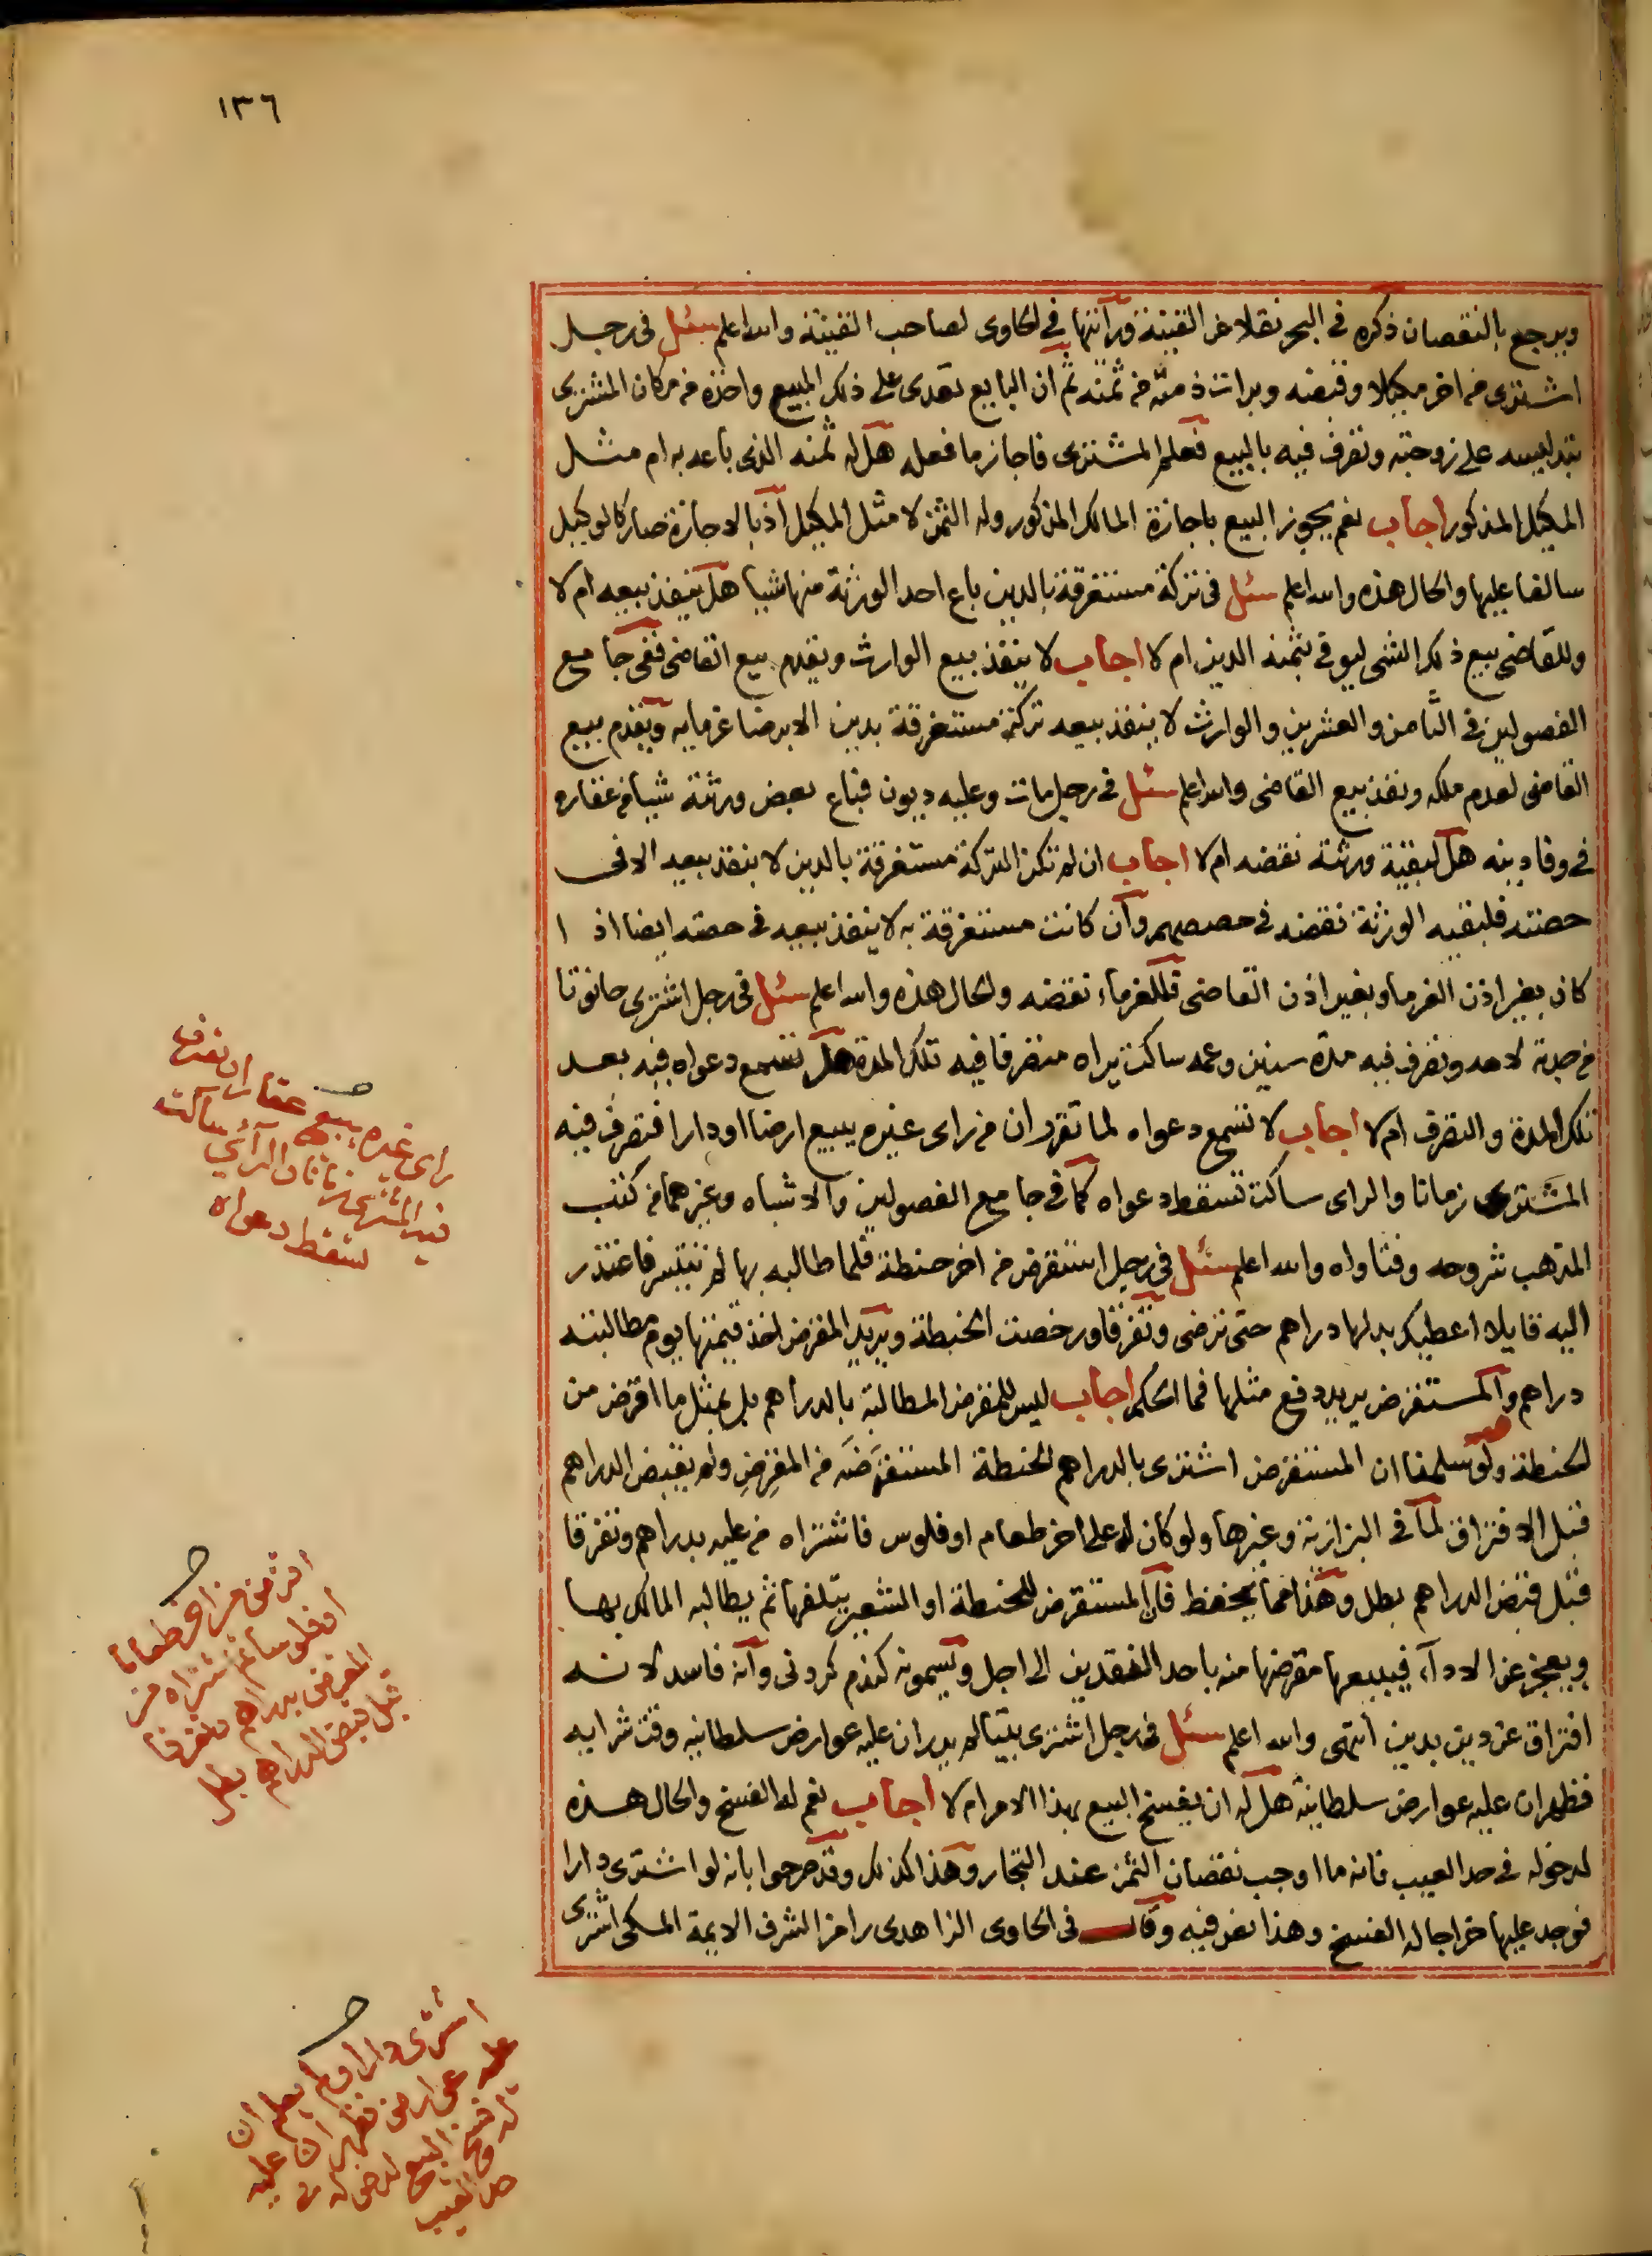 ١٣٦
ويرجع بالنقصان ذكره في البحر نقلا عن القنية ورأيتها في الحاوي لصاحب القنية والله اعلم سئل في رجل
اشترى من اخر مكيلا وقبضه وبرات ذمته من ثمنه ثم ان البايع تعدى على ذلك المبيع واخذه من مكان المشترى
بتدليسه على زوجته وتصرف فيه بالبيع فعلم المشترى فاجاز ما فعله هل له ثمنه الذى باعه به ام مثل
المكيل المذكور اجاب نعم يجوز البيع باجازة المالك المذكور وله الثمن لا مثل المكيل اذ بالاجازة صار كالوكيل
سالفا عليها والحال هذه والله اعلم سئل في تركة مستغرقة بالدين باع احد الورثة منها شيا هل ينفذ بيعه ام لا
وللقاضى بيع ذلك الشى ليوفي بثمنه الدين ام لا اجاب لا ينفذ بيع الوارث ويقدم بيع القاضى ففى جامع
الفصولين في الثامن والعشرين والوارث لا ينفذ بيعه تركة مستغرقة بدين الا برضا غرمايه ويقدم بيع
القاضى لعدم ملكه ونفذ بيع القاضى والله اعلم سئل في رجل مات وعليه ديون فباع بعض ورثته شيا من عقاره
في وفا دينه هل لبقية ورثته نقضه ام لا اجاب ان لم تكن التركة مستغرقة بالدين لا ينفذ بيعه الا فى
حصته فلبقيه الورثة نقضه في حصصهم وان كانت مستغرقة به لا ينفذ بيعه في حصته ايضا اذا
كان بغير اذن الغرما وبغير اذن القاضى فللغرماء نقضه والحال هذه والله اعلم سئل في رجل اشترى حانوتا
من جدته لامه وتصرف فيه مدة سنين وعمه ساكت يراه متصرفا فيه تلك المدة هل تسمع دعواه فيه بعد
تلك المدة والتصرف ام لا اجاب لا تسمع دعواه لما تقرر ان من راى غيره يبيع ارضا او دارا فتصرف فيه
المشترى زمانا والراى ساكت تسقط دعواه كما في جامع الفصولين والاشباه وغيرهما من كتب
المذهب شروحه وفتاواه والله اعلم سئل في رجل استقرض من اخر حنطة فلما طالبه بها لم تتيسر فاعتذر
اليه قايلا اعطيك بدلها دراهم حتى ترضى وتفرقا ورخصت الحنطة ويريد المقرض اخذ قيمتها يوم مطالبته
دراهم والمستقرض يريد دفع مثلها فما الحكم اجاب ليس للمقرض المطالبة بالدراهم بل بمثل ما اقرض من
الحنطة ولو سلمنا ان المستقرض اشترى بالدراهم الحنطة المستقرضة من المقرض ولم يقبض الدراهم
قبل الافتراق لما في البزازية وغيرها ولو كان له على اخر طعام او فلوس فاشتراه من عليه بدراهم وتفرقا
قبل قبض الدراهم بطل وهذا مما يحفظ فان المستقرض للحنطة او الشعير يتلفها ثم يطالبه المالك بها
ويعجز عن الاداء فيبيعها مقرضها منه باحد النقدين الى اجل ويسمونه كندم كردنى وانه فاسد لانه
افتراق عن دين بدين انتهى والله اعلم سئل في رجل اشترى بيتا لم يدر ان عليه عوارض سلطانيه وقت شرايه
فظهر ان عليه عوارض سلطانيه هل له ان يفسخ البيع بهذا الامر ام لا اجاب نعم له الفسخ والحال هذه
لدخوله في حد العيب فانه ما اوجب نقصان الثمن عند التجار وهذا كذلك وقد صرحوا بانه لو اشترى دارا
فوجد عليها خراجا له الفسخ وهذا نص فيه وقال في الحاوى الزاهدى رامزا لشرف الايمة المكى اشترى
راى غيره يبيع عقارا فتصرف
فيه المشترى زمانا والرآى ساكت
تسقط دعواه
اقرض من اخر طعاما
او فلوسا ثم اشتراه من
المقرض بدراهم وتفرقا
قبل قبض الدراهم بطل
اشترى دارا ولم يعلم ان
عليه عوارض فظهر ان عليه
له فسخ البيع لدخوله في
حد العيب